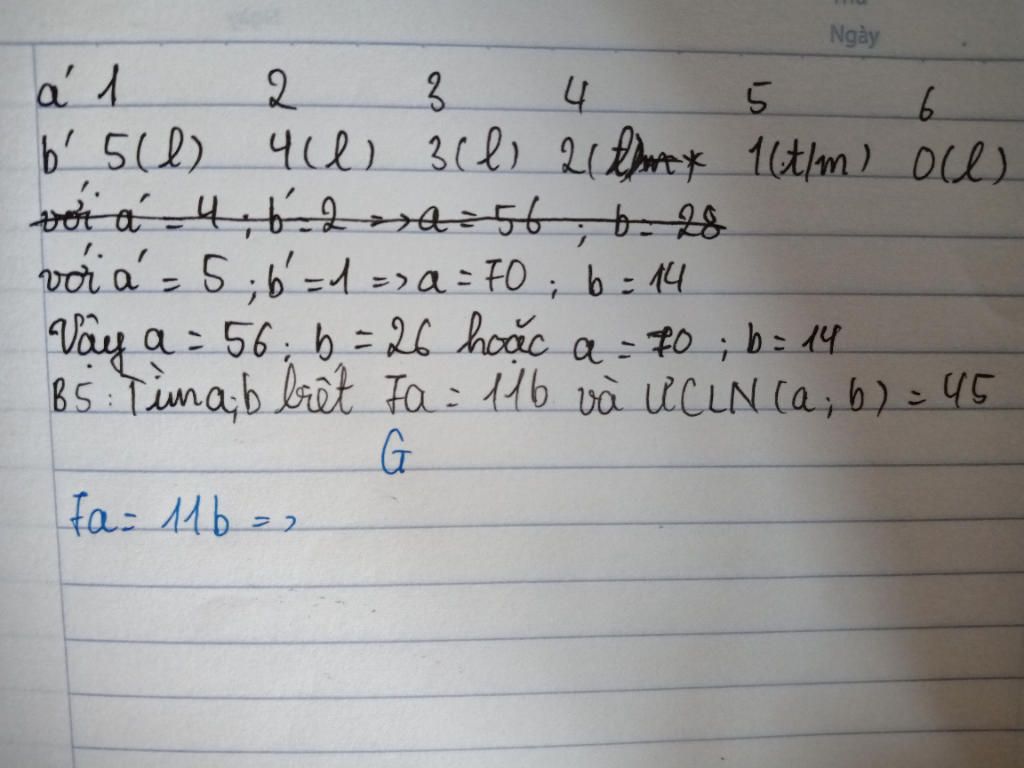 Thứ
Ngày
Ngày
a' 1 2 3 4 5 6
b' 5(l) 4(l) 3(l) 2(t/m) 1(t/m) 0(l)
với a' = 4 ; b' = 2 => a = 56 ; b = 28
với a' = 5 ; b' = 1 => a = 70 ; b = 14
Vậy a = 56 ; b = 26 hoặc a = 70 ; b = 14
B5 : Tìm a;b biết 7a = 11b và ƯCLN(a ; b) = 45
G
7a = 11b =>